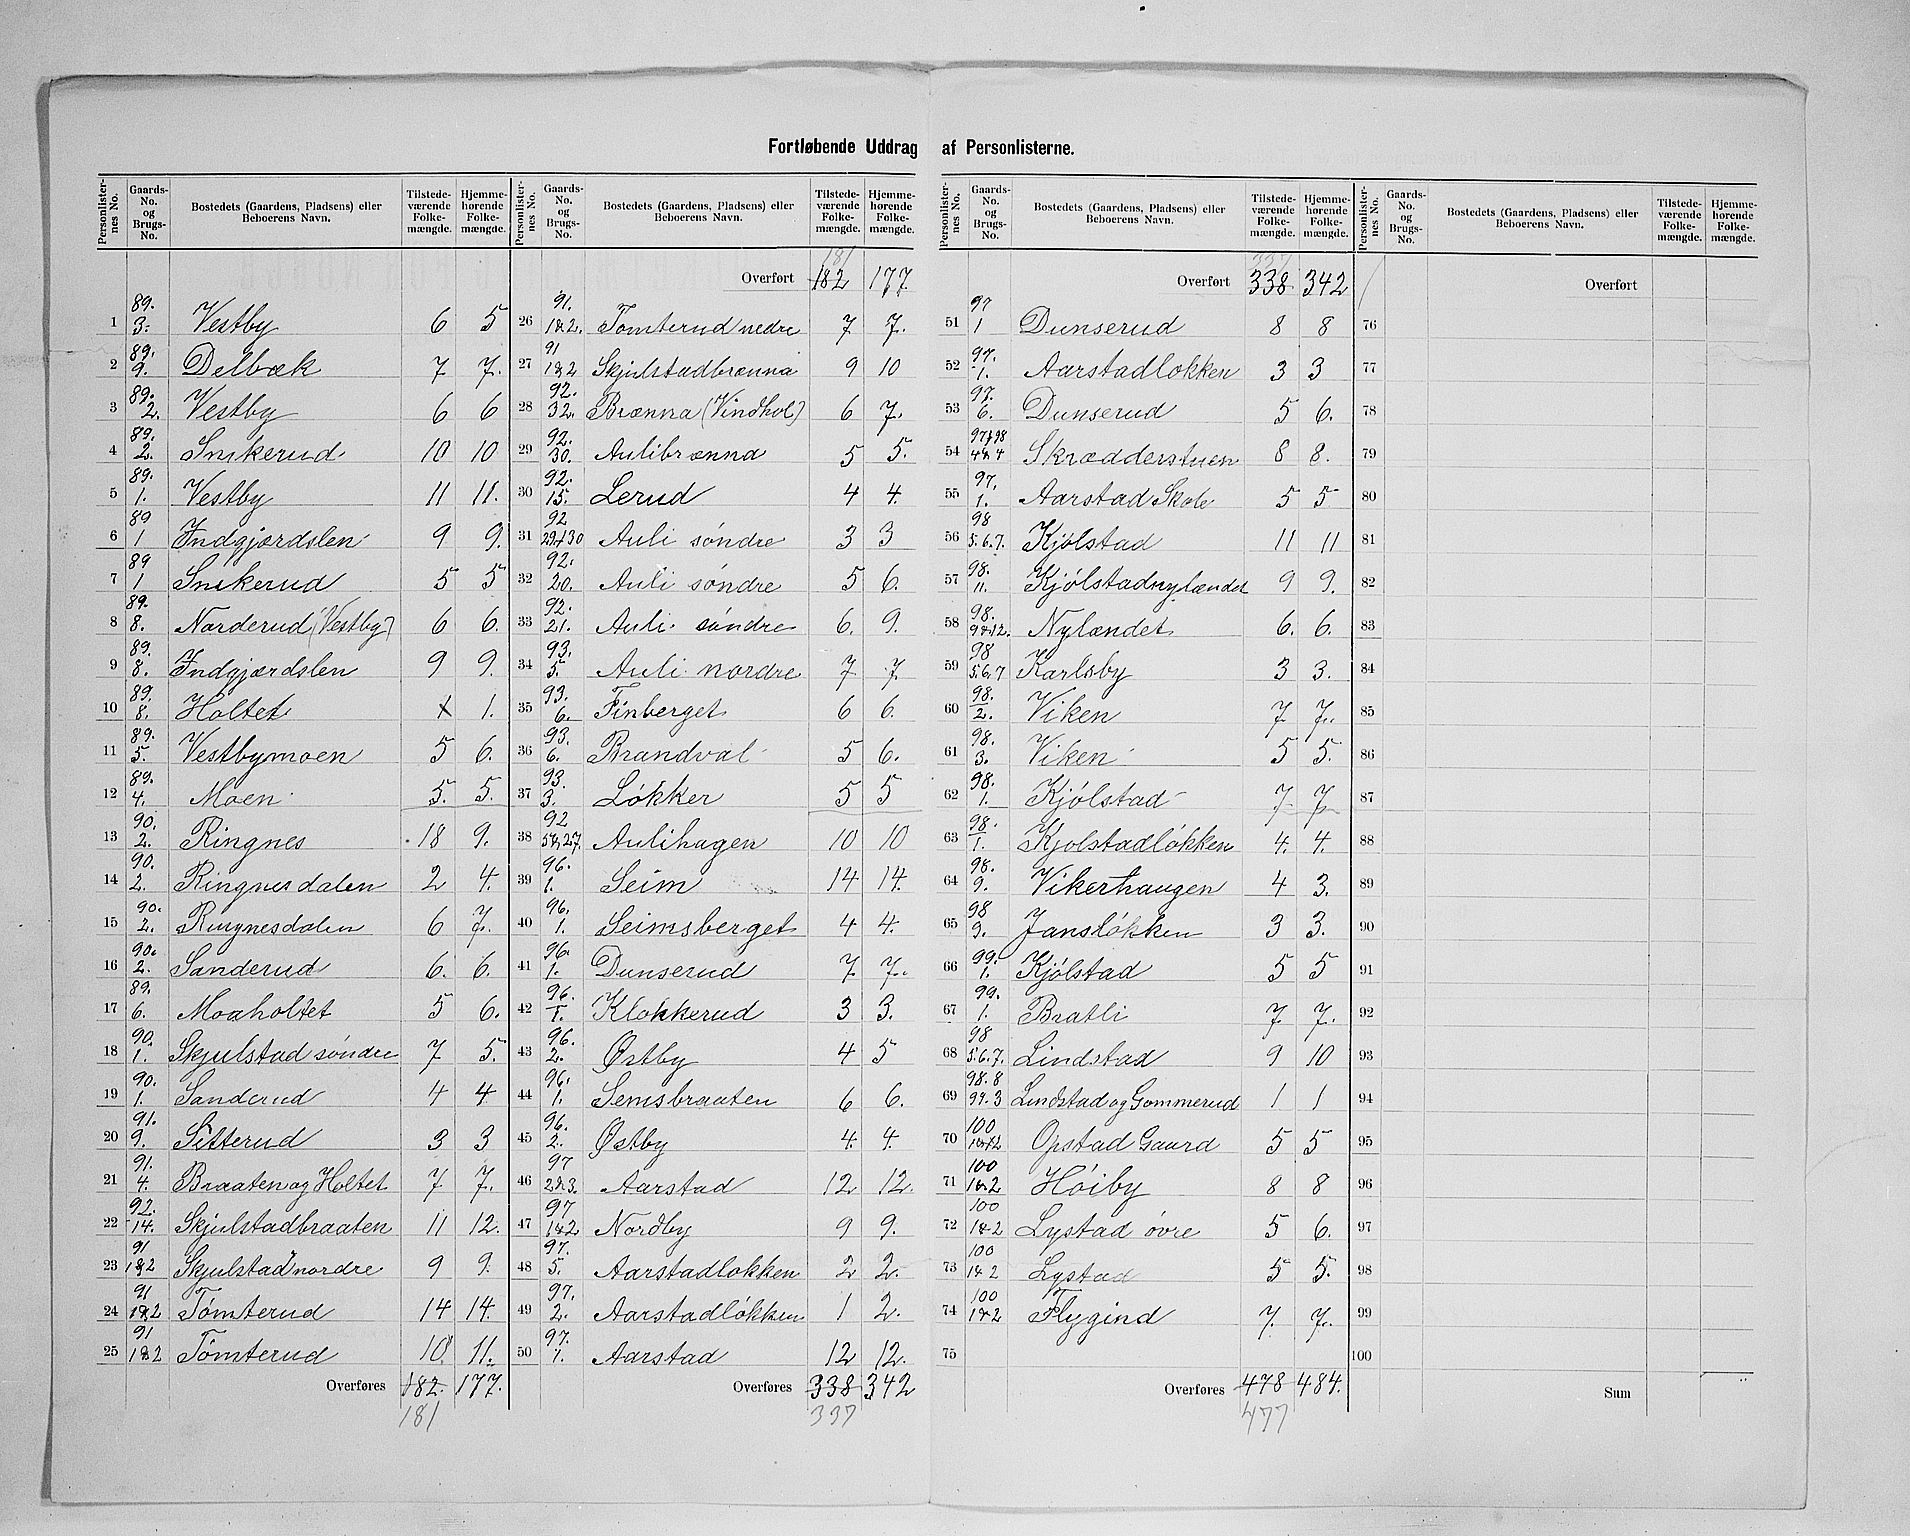 Fortløbende Uddrag af Personlisterne.
Personlisternes No. Gaards-No. og Brugs-No. Bostedets (Gaardens, Pladsens) eller Beboerens Navn. Tilstedeværende Folkemængde. Hjemmehørende Folkemængde.
1 89. 3. Vestby 6 5
2 89. 9. Delbæk 7 7.
3 89. 2. Vestby 6 6
4 89. 2. Snikerud 10 10
5 89. 1. Vestby 11 11.
6 89 1 Indgjærdslen 9 9.
7 89 1 Snikerud 5 5
8 89. 8. Narderud (Vestby) 6 6.
9 89. 8. Indgjærdslen 9 9.
10 89. 8. Holtet x 1.
11 89. 5. Vestbymoen 5 6.
12 89. 4. Moen 5. 5.
13 90. 2. Ringnes 18 9.
14 90. 2. Ringnesdalen 2 4.
15 90. 2. Ringnesdalen 6 7.
16 90. 2. Sanderud 6. 6.
17 89. 6. Moaholtet 5 6.
18 90. 1. Skjulstad søndre 7 5.
19 90. 1. Sanderud 4 4
20 91. 9. Sitterud 3 3
21 91. 4. Braaten og Holtet 7 7.
22 92. 14. Skjulstadbraaten 11 12.
23 91 1&2 Skjulstad nordre 9 9.
24 91 1&2 Tömterud 14 14.
25 91 1&2 Tömterud 10. 11.
Overføres 182. 177.
181
Personlisternes No. Gaards-No. og Brugs-No. Bostedets (Gaardens, Pladsens) eller Beboerens Navn. Tilstedeværende Folkemængde. Hjemmehørende Folkemængde.
181
Overført 182 177
26 91. 1&2. Tomterud nedre 7 7.
27 91 1&2 Skjulstadbrænna 9 10
28 92. 32. Brænna (Vindhol) 6 7.
29 92. 30. Aulibrænna 5 5.
30 92. 15. Lerud 4 4.
31 92 29&30 Auli søndre 3 3
32 92. 20. Auli søndre 5 6.
33 92. 21. Auli søndre 6. 9.
34 93. 5. Auli nordre 7 7.
35 93. 6. Finberget 6 6.
36 93. 6. Brandval 5 6.
37 93. 3. Løkker 5 5
38 92 5&27. Aulihagen 10 10
39 96. 1. Seim 14 14.
40 96. 1. Seimsberget 4 4.
41 96. 1. Dunserud 7 7.
42 96. 1. Klokkerud 3 3.
43 96. 2. Østby 4 5
44 96. 1. Semsbraaten 6 6.
45 96. 2. Østby 4. 4.
46 97 2&3. Aarstad 12 12.
47 97 1&2 Nordby 9 9.
48 97. 5. Aarstadlokken 2 2.
49 97. 2. Aarstadløkken 1 2.
50 97. 1. Aarstad 12 12.
Overføres 338 342
337
Personlisternes No. Gaards-No. og Brugs-No. Bostedets (Gaardens, Pladsens) eller Beboerens Navn. Tilstedeværende Folkemængde. Hjemmehørende Folkemængde.
337
Overført 338 342
51 97 1 Dunserud 8 8
52 97. 1. Aarstadlokken 3 3
53 97. 6. Dunserud 5 6.
54 97&98 4&4 Skrædderstuen 8 8.
55 97. 1. Aarstad Skole 5 5
56 98 5.6.7. Kjølstad 11 11
57 98. 11. Kjølstadnylændet 9 9.
58 98. 9&12. Nylændet 6. 6.
59 98 5.6.7 Karlsby 3 3.
60 98. 2. Viken 7 7.
61 98. 3. Viken 5 5.
62 98. 1. Kjølstad 7 7
63 98. 1. Kjolstadløkken 4. 4.
64 98. 9. Vikerhaugen 4 3.
65 98 9. Jansløkken 3 3.
66 99. 1. Kjølstad 5 5
67 99. 1. Bratli 7 7.
68 98 5.6.7. Lindstad 9 10
69 98.8 99.3 Lindstad og Gommerud 1 1
70 100 1&2 Opstad Gaard 5 5
71 100 1&2 Høiby 8 8
72 100 1&2 Lystad øvre 5 6.
73 100 1&2 Lystad 5 5.
74 100 1&2 Flygind 7. 7.
75
Overføres 478 484.
477
Personlisternes No. Gaards-No. og Brugs-No. Bostedets (Gaardens, Pladsens) eller Beboerens Navn. Tilstedeværende Folkemængde. Hjemmehørende Folkemængde.
Overført
76
77
78
79
80
81
82
83
84
85
86
87
88
89
90
91
92
93
94
95
96
97
98
99
100
Sum